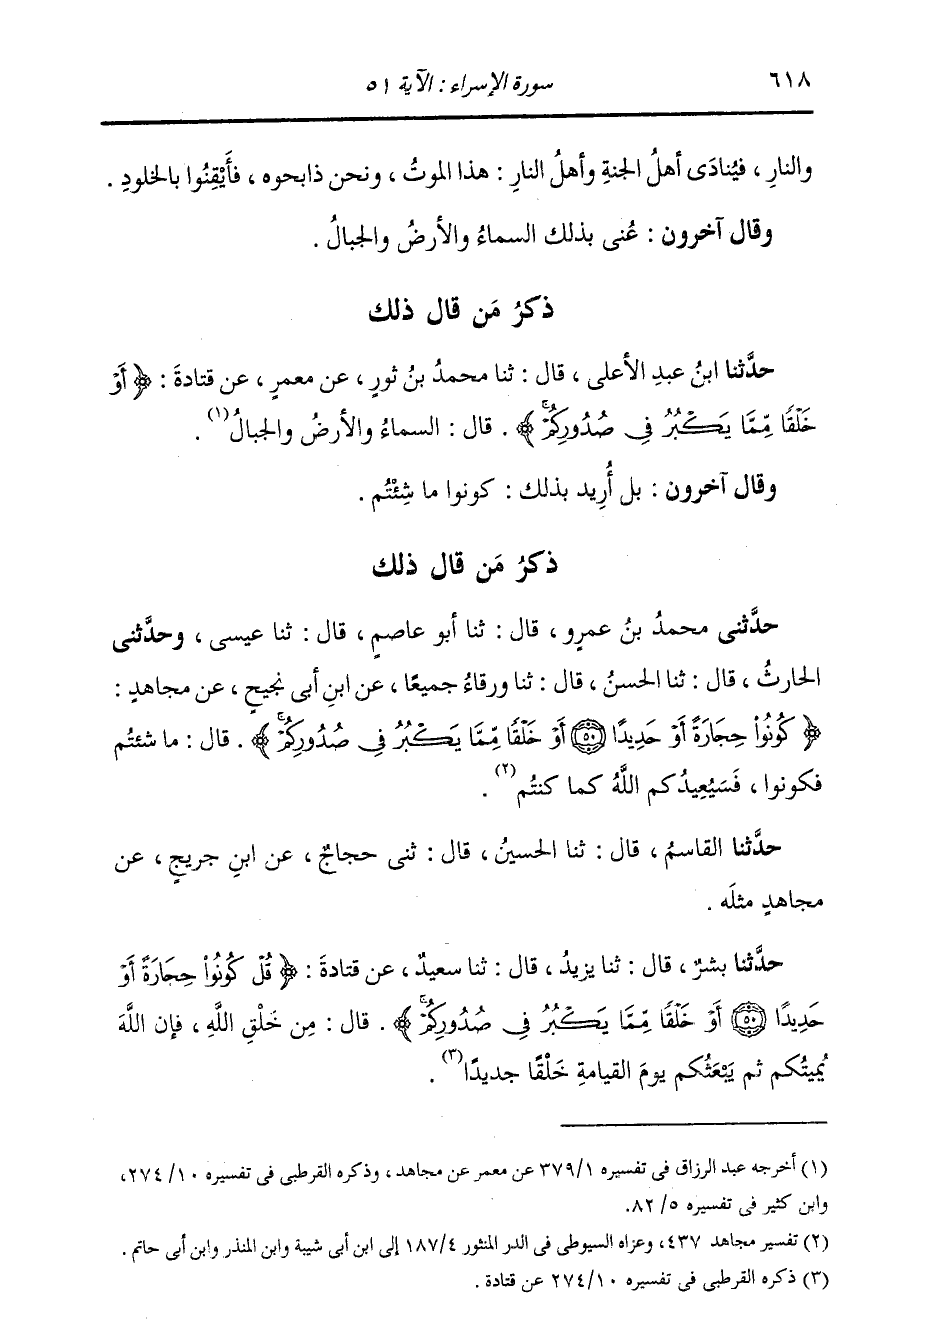 ٦١٨
سورة الإسراء : الآية ٥١
والنارِ ، فيُنادَى أهلُ الجنةِ وأهلُ النارِ : هذا الموتُ ، ونحن ذابحوه ، فأَيْقِنُوا بالخلودِ .
وقال آخرون : عُنى بذلك السماءُ والأرضُ والجبالُ .
ذكرُ مَن قال ذلك
حدَّثنا ابنُ عبدِ الأعلى ، قال : ثنا محمدُ بنُ ثورٍ ، عن معمرٍ ، عن قتادةَ : ﴿ أَوْ
خَلْقًا مِّمَّا يَكْبُرُ فِى صُدُورِكُمْۚ ﴾ . قال : السماءُ والأرضُ والجبالُ(١) .
وقال آخرون : بل أُريد بذلك : كونوا ما شِئْتُم .
ذكرُ مَن قال ذلك
حدَّثنى محمدُ بنُ عمرٍو ، قال : ثنا أبو عاصمٍ ، قال : ثنا عيسى ، وحدَّثنى
الحارثُ ، قال : ثنا الحسنُ ، قال : ثنا ورقاءُ جميعًا ، عن ابنِ أبى نجيحٍ ، عن مجاهدٍ :
﴿ كُونُواْ حِجَارَةً أَوْ حَدِيدًا ۝٥٠ أَوْ خَلْقًا مِّمَّا يَكْبُرُ فِى صُدُورِكُمْۚ ﴾ . قال : ما شئتُم
فكونوا ، فَسَيُعِيدُكم اللَّهُ كما كنتُم(٢) .
حدَّثنا القاسمُ ، قال : ثنا الحسينُ ، قال : ثنى حجاجٌ ، عن ابنِ جريجٍ ، عن
مجاهدٍ مثلَه .
حدَّثنا بشرٌ ، قال : ثنا يزيدُ ، قال : ثنا سعيدٌ ، عن قتادةَ : ﴿ قُلْ كُونُواْ حِجَارَةً أَوْ
حَدِيدًا ۝٥٠ أَوْ خَلْقًا مِّمَّا يَكْبُرُ فِى صُدُورِكُمْۚ ﴾ . قال : مِن خَلْقِ اللَّهِ ، فإن اللَّهَ
يُميتُكم ثم يَبْعَثُكم يومَ القيامةِ خَلْقًا جديدًا(٣) .
(١) أخرجه عبد الرزاق فى تفسيره ٣٧٩/١ عن معمر عن مجاهد ، وذكره القرطبى فى تفسيره ٢٧٤/١٠،
وابن كثير فى تفسيره ٨٢/٥.
(٢) تفسير مجاهد ٤٣٧، وعزاه السيوطى فى الدر المنثور ١٨٧/٤ إلى ابن أبى شيبة وابن المنذر وابن أبى حاتم .
(٣) ذكره القرطبى فى تفسيره ٢٧٤/١٠ عن قتادة .